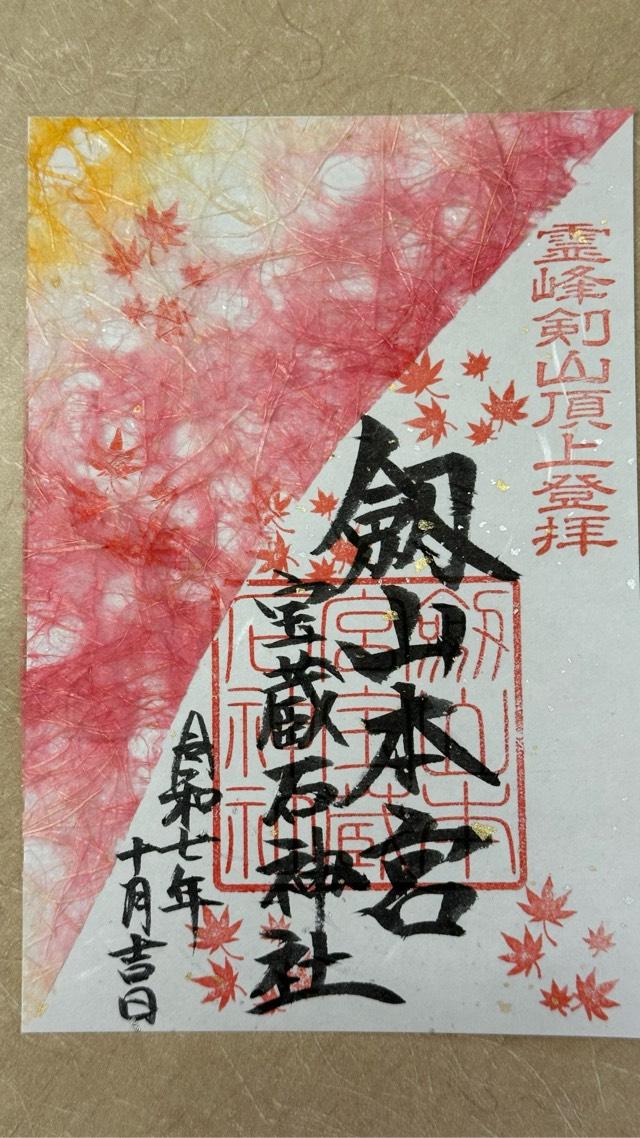 霊峰剣山頂上登拝
劔山本宮
宝蔵石神社
令和七年
十月吉日
劔山本
宮宝蔵
石神社